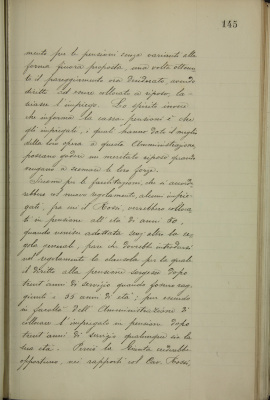 145
mento per le pensioni senza varianti alla
forma finora proposta, una volta ottenu-
to il pareggiamento ora desiderato, avendo
diritto ad essere collocato a riposo, la-
sciasse l'impiego. Lo spirito invece
che informa la cassa-pensioni è che
gli impiegati, i quali hanno dato il meglio
della loro opera a questa Amministrazione,
possano godere un meritato riposo quando
vengano a scemare le loro forze.
per le facilitazioni, che si accorde-
rebbero col nuovo regolamento, alcuni impie-
gati, fra cui il Rossi, verrebbero colloca-
ti in pensione all'età di anni 50,
quando venisse adottata anzi altro la re-
gola generale, pare che dovrebbe introdursi
nel regolamento la clausola per la quale
il diritto alla pensione sorgesse dopo
trent'anni di servizio quando fossero rag-
giunti i 55 anni di età; pur essendo
in facoltà dell'Amministrazione di
collocare l'impiegato in pensione dopo
trent'anni di servizio qualunque sia la
sua età. Però la Giunta crederebbe
opportuno, nei rapporti col Cav. Rossi